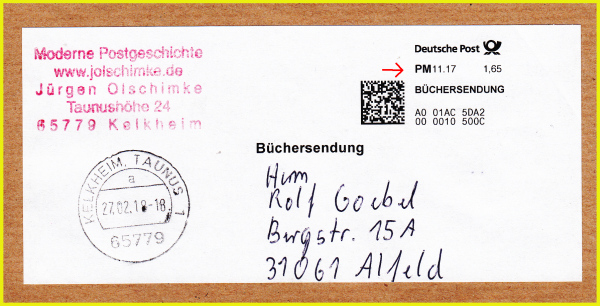 Moderne Postgeschichte
www.jolschimke.de
Jürgen Olschimke
Taunushöhe 24
65779 Kelkheim
Deutsche Post
PM11.17 1,65
BÜCHERSENDUNG
A0 01AC 5DA2
00 0010 500C
Büchersendung
Herrn
Rolf Goebel
Bergstr. 15A
31061 Alfeld
KELKHEIM, TAUNUS 1
a
27.02.18-18
65779